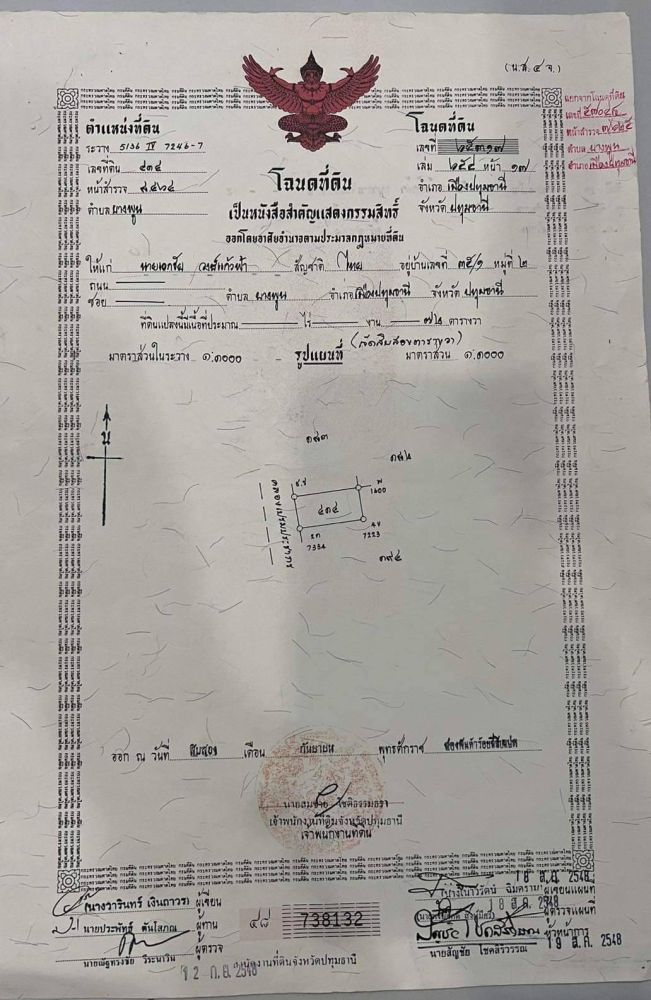 (น.ส. ๔ จ.)
แยกจากโฉนดที่ดิน
เลขที่
หน้าสำรวจ
ตำบล บางพูน
อำเภอเมืองปทุมธานี
ตำแหน่งที่ดิน
ระวาง 5136 IV 7246-7
เลขที่ดิน ๔๓๔
หน้าสำรวจ
ตำบล บางพูน
โฉนดที่ดิน
เลขที่
เล่ม หน้า ๑๗
อำเภอ เมืองปทุมธานี
จังหวัด ปทุมธานี
โฉนดที่ดิน
เป็นหนังสือสำคัญแสดงกรรมสิทธิ์
ออกโดยอาศัยอำนาจตามประมวลกฎหมายที่ดิน
ให้แก่ นายเอกชัย วงษ์แก้วฟ้า สัญชาติ ไทย อยู่บ้านเลขที่ ๓๕/๑ หมู่ที่ ๒
ถนน
ซอย ตำบล บางพูน อำเภอเมืองปทุมธานี จังหวัด ปทุมธานี
ที่ดินแปลงนี้มีเนื้อที่ประมาณ ไร่ งาน ๗๒ ตารางวา
(เจ็ดสิบสองตารางวา)
มาตราส่วนในระวาง ๑:๑๐๐๐ รูปแผนที่ มาตราส่วน ๑:๑๐๐๐
น
๑๘๓
๑๘๒
คลองเปรมประชากร
พ
1600
๔๓๔
7334
4ข
7223
๑๙๔
ออก ณ วันที่ สิบสอง เดือน กันยายน พุทธศักราช สองพันห้าร้อยสี่สิบแปด
นายสมชาย โชติธรรมธรา
เจ้าพนักงานที่ดินจังหวัดปทุมธานี
เจ้าพนักงานที่ดิน
(นางวารินทร์ เงินถาวร) ผู้เขียน
นายประพัทธ์ ตันโสภณ ผู้ทาน
ผู้ตรวจ
นายณัฐทรงชัย วีระนาวิน
12 ก.ย. 2548
สำนักงานที่ดินจังหวัดปทุมธานี
๔๘ 738132
18 ส.ค. 2548
ผู้เขียนแผนที่
18 ส.ค. 2548
ผู้ตรวจแผนที่
หัวหน้าการ
นายสัญชัย โชคสิริวรรณ
19 ส.ค. 2548